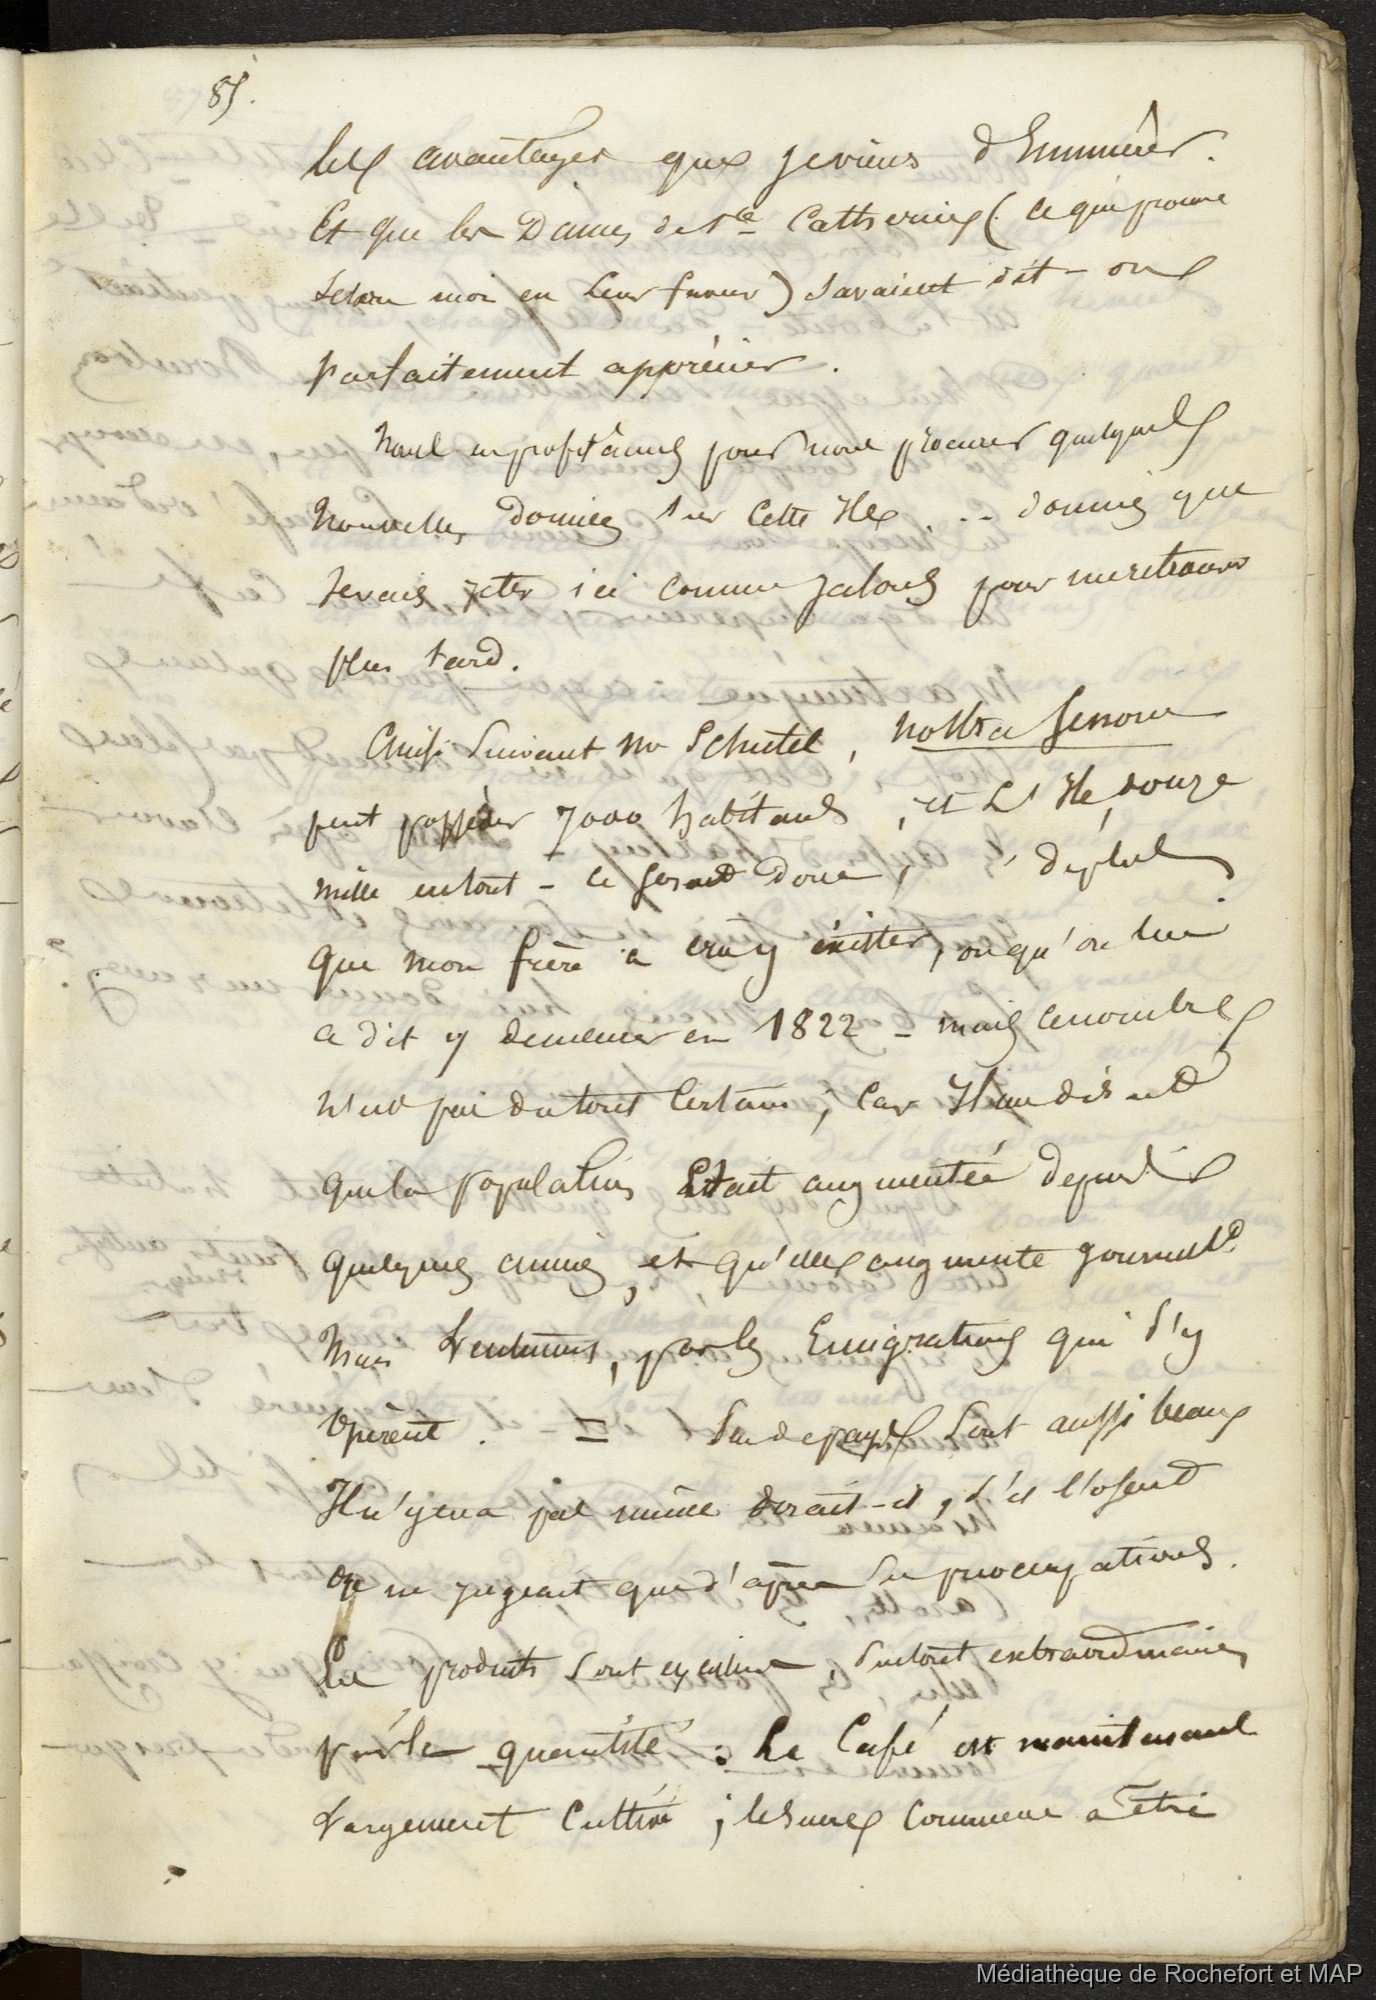 85.
les avantages que je viens d'Enumérer.
Et que les Dames de Ste Catherine (ce qui prouve
selon moi en leur faveur) savaient dit-on
parfaitement apprécier.
Nous en profitâmes pour nous procurer quelques
nouvelles données sur Cette Ile ... données que
je vais jeter ici comme jalons pour me retrouver
plus tard.
Ainsi suivant Mr Schutel, Nostra Senora
peut posséder 7000 habitans, et L'Ile, douze
mille en tout - ce serait donc, de plus
que mon frère a cru y exister, ou qu'on lui
a dit y demeurer en 1822 - mais ce nombre
n'est pas du tout Certain, Car Il me dis
que la population Etait augmentée depuis
quelques années, et qu'elle augmente journellt.
mais lentement, par les Emigrations qui s'y
opèrent. = Peu de pays sont aussi beaux
Il n'y en a pas même dirait-il, s'il l'osait
et ne jugeant que d'après ses préoccupations.
Les produits sont excellens, surtout extraordinaires
par la quantité : Le Café est maintenant
largement Cultivé ; le sucre commence à l'être
Médiathèque de Rochefort et MAP